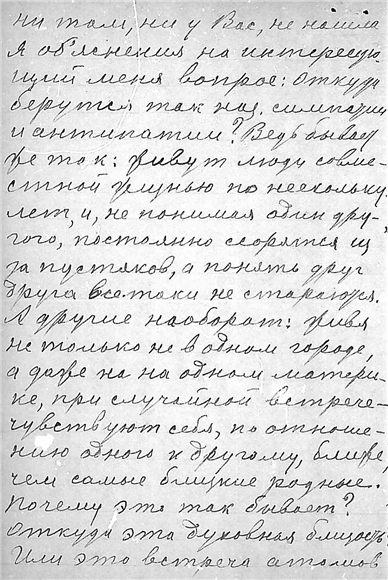 ни там, ни у Вас, не нашла
я об'яснения на интересую-
щий меня вопрос: откуда
берутся так наз. симпатии
и антипатии? Ведь бывает
же так: живут люди совме-
стной жизнью по несколько
лет, и, не понимая один дру-
гого, постоянно ссорятся из
за пустяков, а понять друг
друга все-таки не стараются.
А другие наоборот: живя
не только не в одном городе,
а даже на на одном матери-
ке, при случайной встрече-
чувствуют себя, по отноше-
нию одного к другому, ближе
чем самые близкие родные.
Почему это так бывает?
Откуда эта духовная близость
Или это встреча атомов